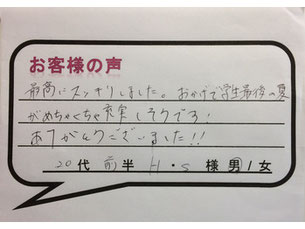 お客様の声
最高にスッキリしました。おかげで学生最後の夏
がめちゃくちゃ充実しそうです!
ありがとうございました!!
20代 前半 H・S 様 男/女